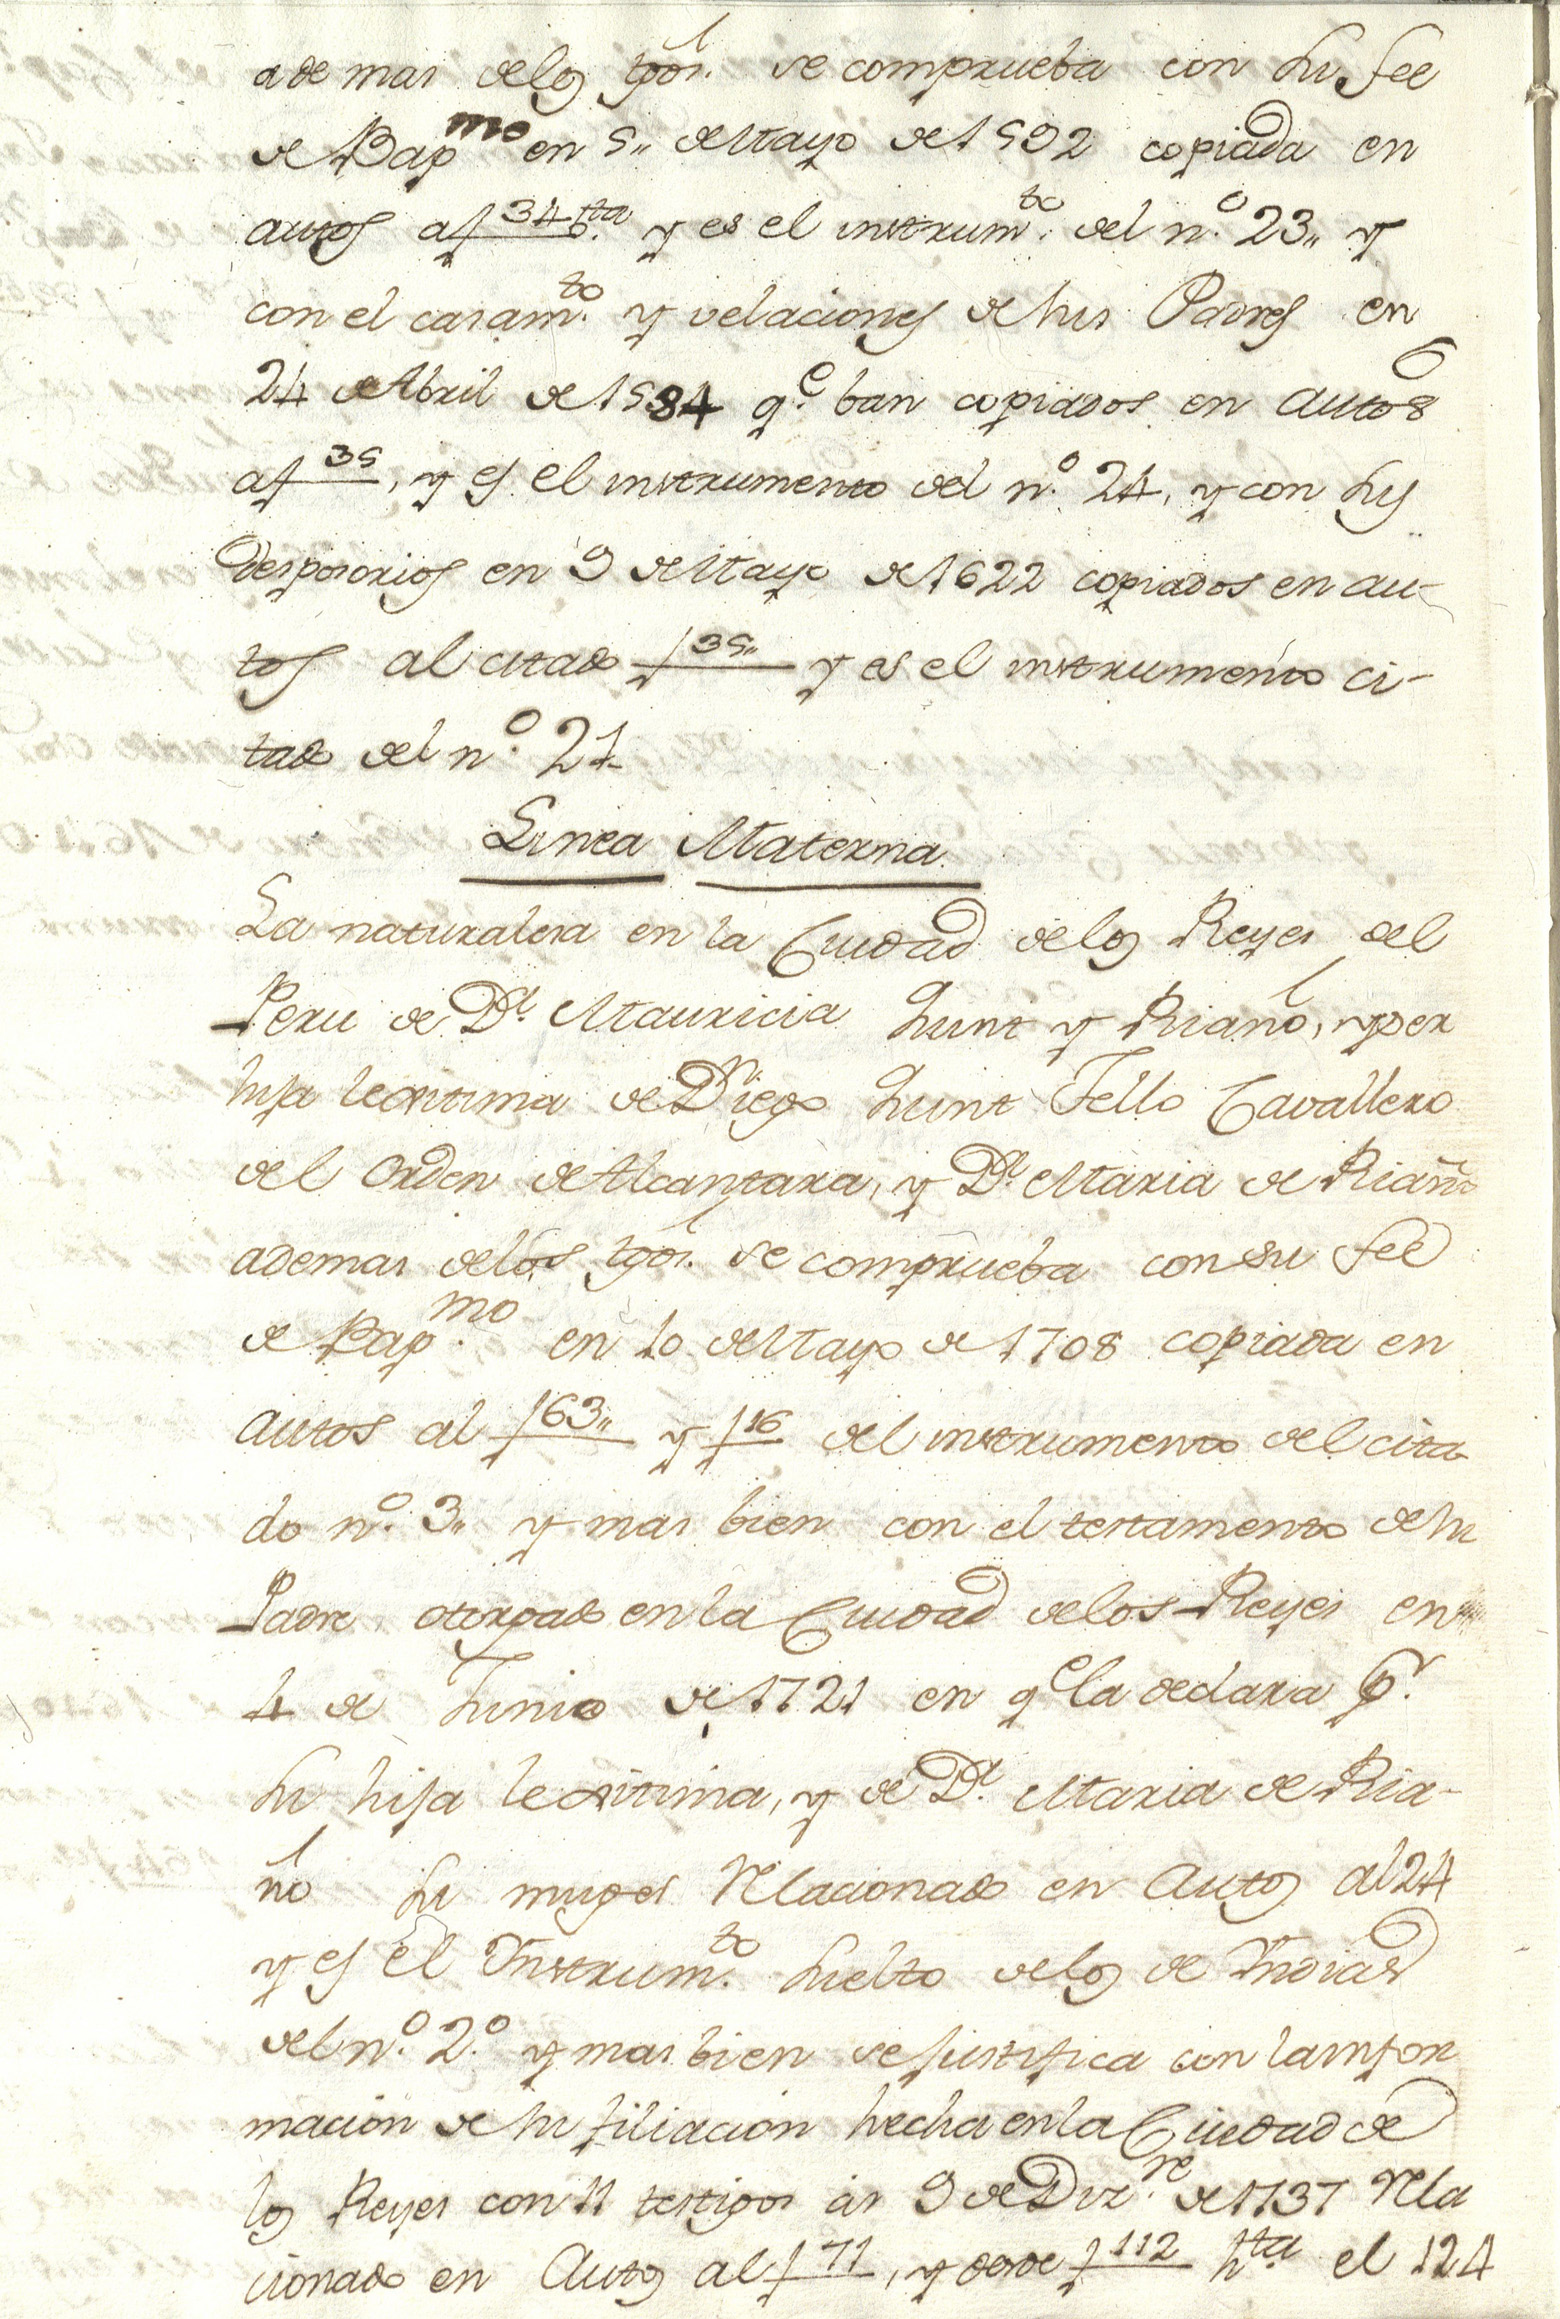 ademas delos tgos. se comprueba con su fee
de Bapmo en 5,, de Mayo de 1592 copiada en
autos af 34 bta y es el instrumto. del no. 23,, y
con el casamto. y velaciones de sus Padres en
24 de Abril de 1584 qe. ban copiados en autos
af 35, y es el instrumento del no. 24, y con sus
Desposorios en 9 de Mayo de 1622 copiados en au-
tos al citado f 35,, y es el instrumento ci-
tado del no. 21
Linea Materna
La naturalesa en la Ciudad delos Reyes del
Peru de Da. Mauricia Sunt y Riaño, y ser
hija lexitima de Dn Diego Sunt Tello Cavallero
del Orden de Alcantara, y Da. Maria de Riaño
ademas delos tgos. se comprueba con su fee
de Bapmo. en 10 de Mayo de 1708 copiada en
autos al f 63,, y f 16 del instrumento del cita
do no. 3,, y mas bien con el testamento de su
Padre otorgado en la Ciudad delos Reyes en
4 de Junio de 1721 en qe la declara pr.
su hija lexitima, y de Da. Maria de Ria-
ño su muger Relacionado en Autos al 24
y es el Instrumto. suelto delos de Indias
del no. 2o. y mas bien se justifica con la infor
macion de su filiacion hecha en la Ciudad de
los Reyes con 11 testigos en 9 de Dizre. de 1737 Rela
cionado en Autos al f 71, y desde f 112 hta. el 124